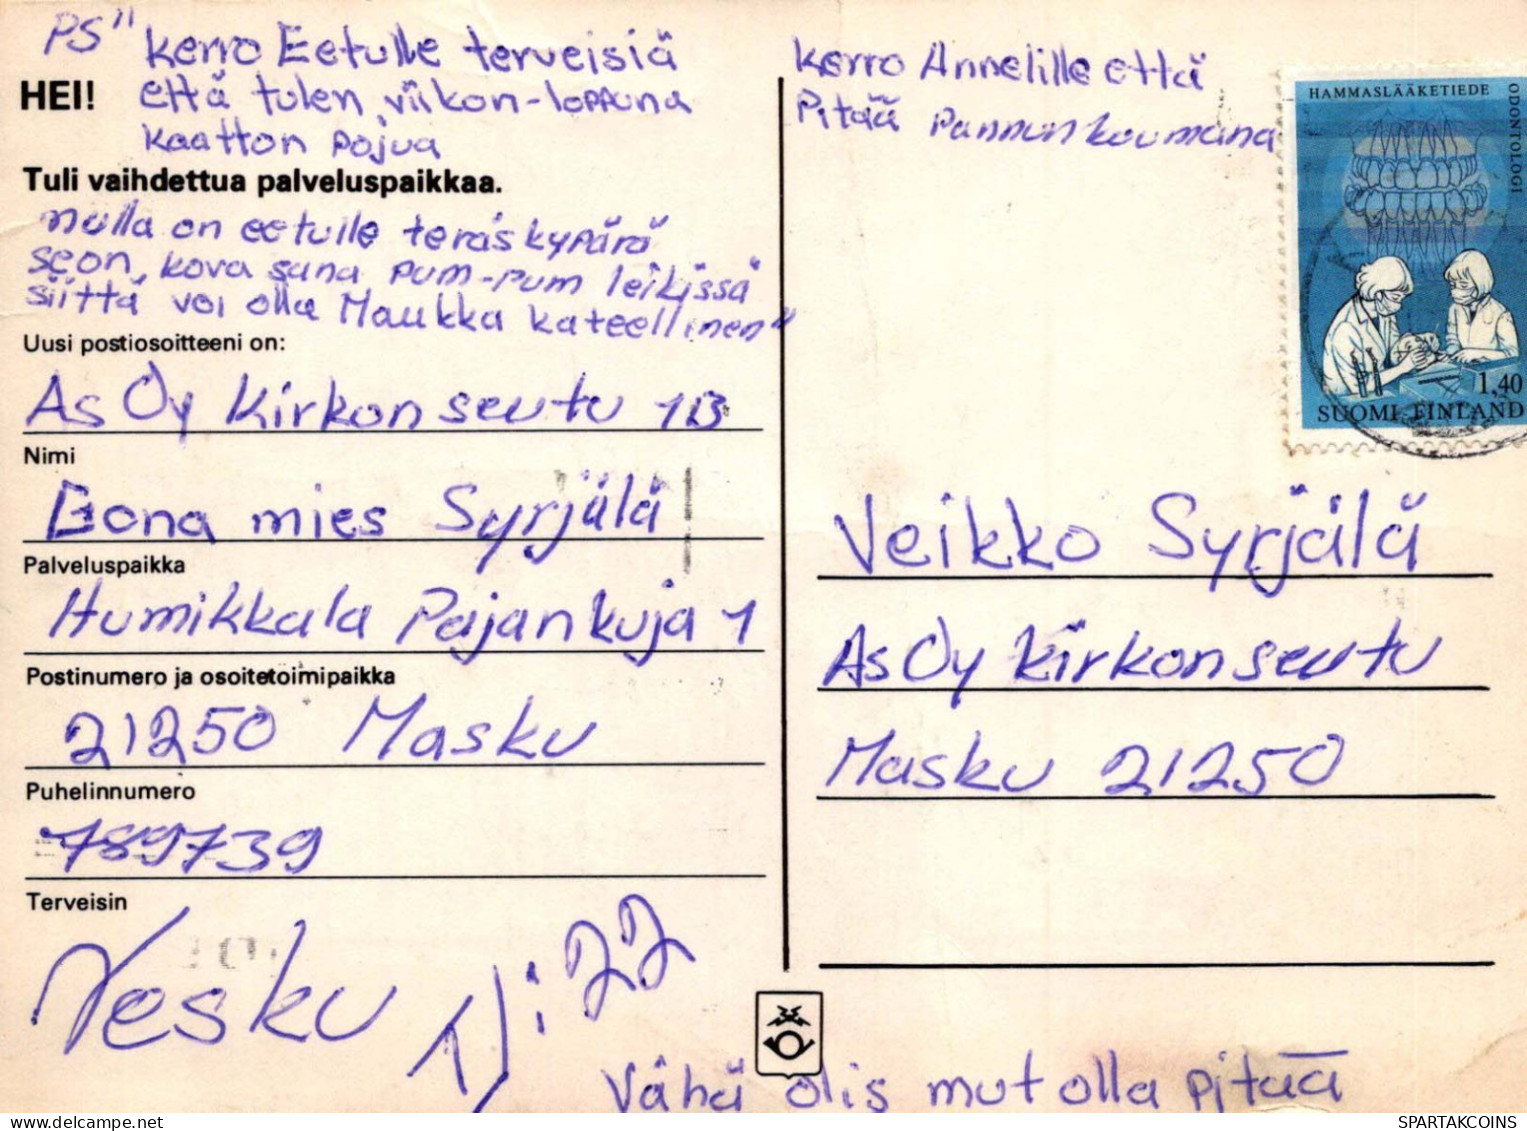 PS" kerro Eetulle terveisiä
HEI! että tulen viikon-loppuna
kaatton pojua
Tuli vaihdettua palveluspaikkaa.
mulla on eetulle teräs kypärä
seon, kova sana pum-pum leikissä
siittä voi olla Maukka kateellinen"
Uusi postiosoitteeni on:
As Oy Kirkon seutu 1B
Nimi
mies Syrjälä
Palveluspaikka
Humikkala Pajankuja 1
Postinumero ja osoitetoimipaikka
21250 Masku
Puhelinnumero
789739
Terveisin
Vesku
:22
kerro Annelille että
Pitää
HAMMASLÄÄKETIEDE
ODONTOLOGI
1,40
SUOMI FINLAND
Veikko Syrjälä
As Oy Kirkon seutu
Masku 21250
Vähä olis mut olla pitää
SPARTAKCOINS